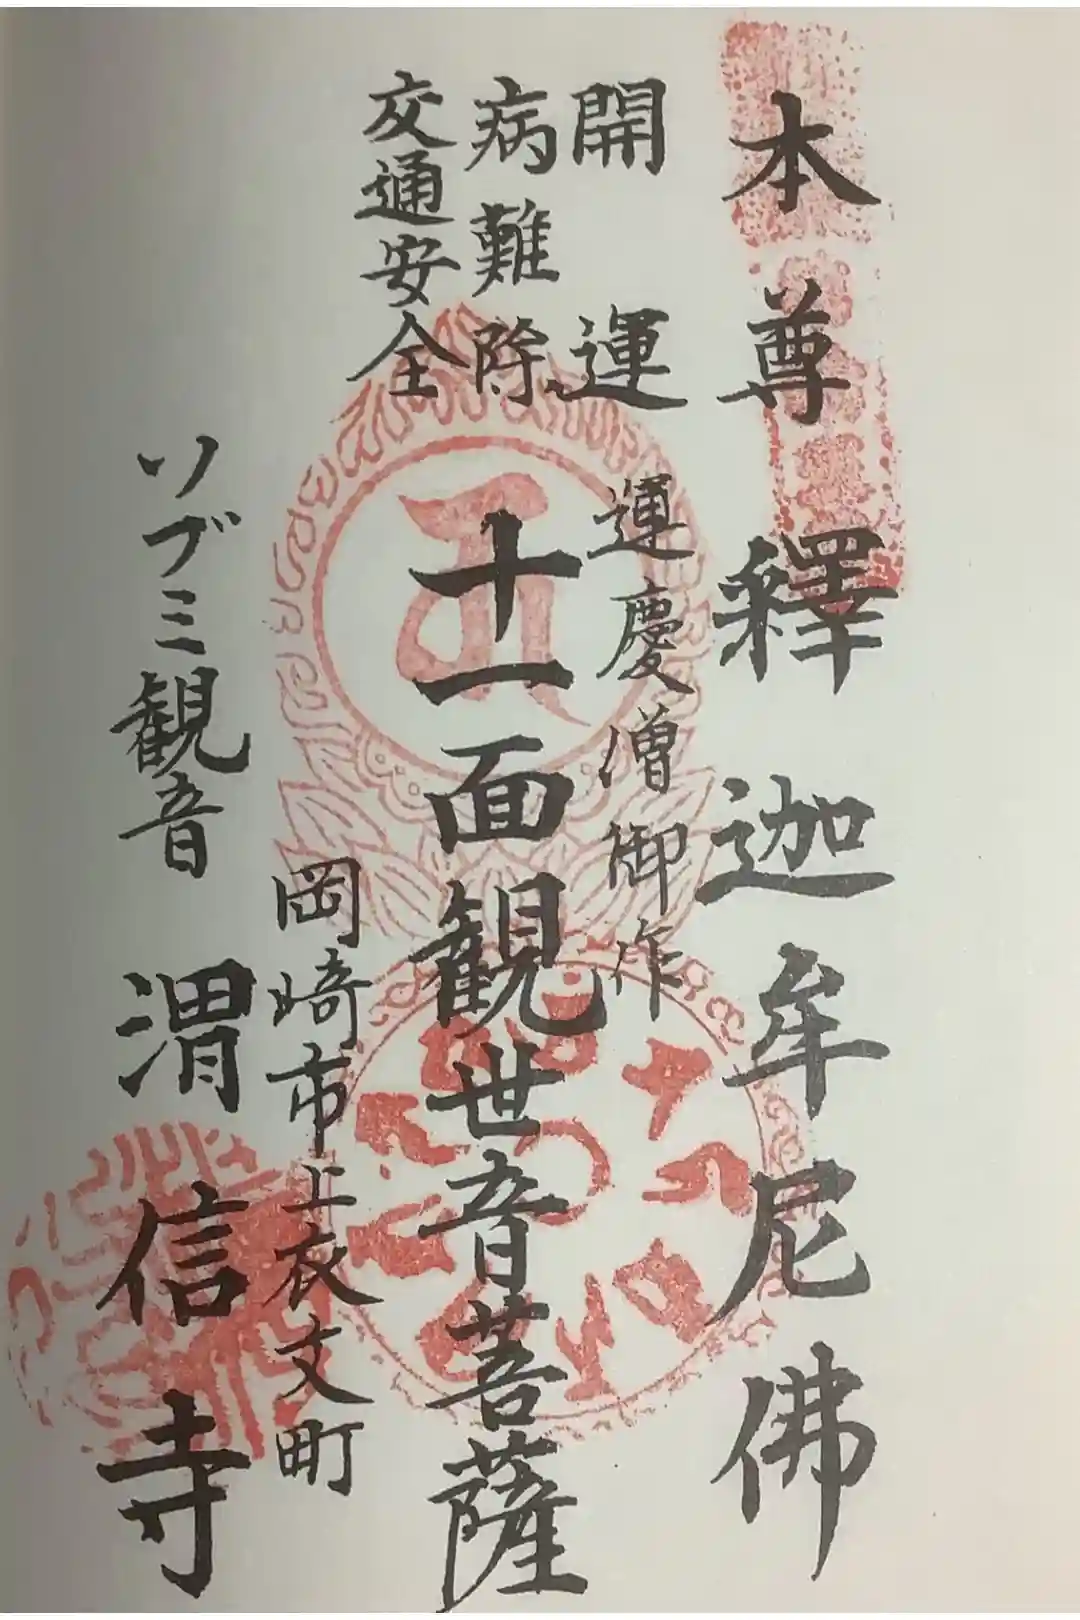 本尊釋迦牟尼佛
開運
運慶僧御作
病難除
十一面観世音菩薩
交通安全
岡崎市上衣文町
ソブミ観音
渭信寺